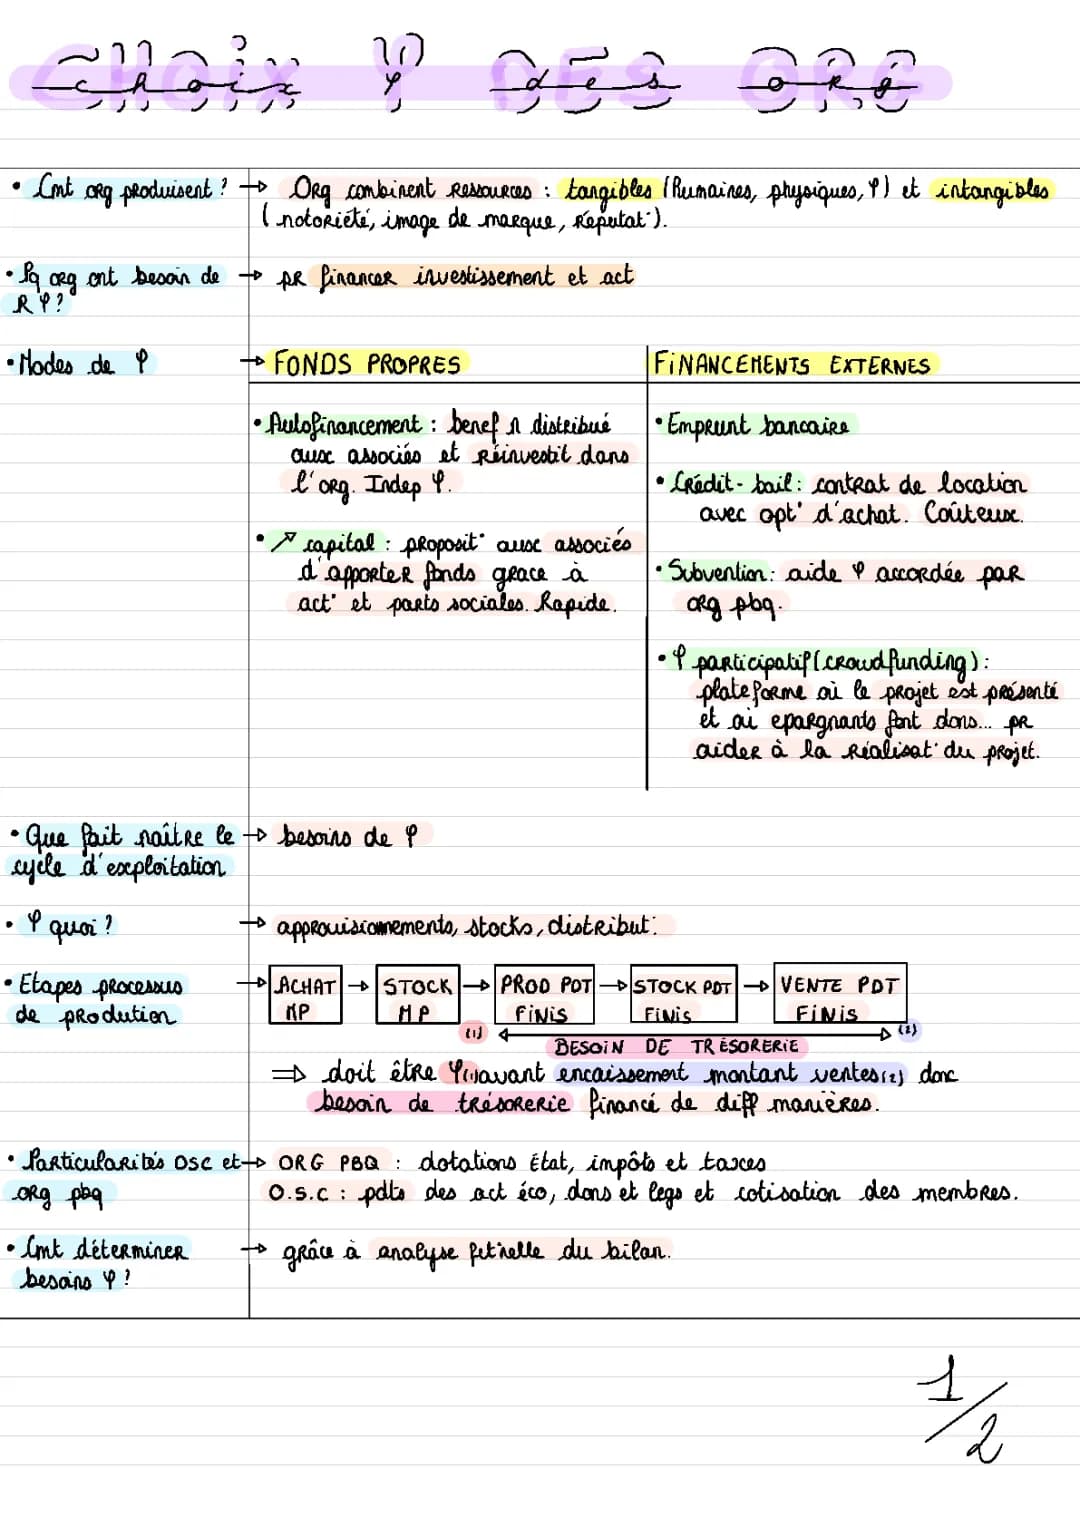 Choix φ des org
• Cmt org produisent ? → Org combinent ressources : tangibles (humaines, physiques, φ) et intangibles
(notoriété, image de marque, réputat°).
• Pq org ont besoin de → pr financer investissement et act
R φ ?
• Modes de φ → FONDS PROPRES
FINANCEMENTS EXTERNES
• Autofinancement : benef n distribué
aux associés et réinvestit dans
l'org. Indep φ.
• ↗ capital : proposit° aux associés
d'apporter fonds grace à
act° et parts sociales. Rapide.
• Emprunt bancaire
• Crédit-bail : contrat de location
avec opt° d'achat. Coûteux.
• Subvention : aide φ accordée par
org pbq.
• φ participatif (crowdfunding) :
plateforme où le projet est présenté
et où epargnants font dons... pr
aider à la réalisat° du projet.
• Que fait naître le → besoins de φ
cycle d'exploitation
• φ quoi ? → approvisionnements, stocks, distribut°.
• Etapes processus → ACHAT → STOCK → PROD PDT → STOCK PDT → VENTE PDT
de prodution MP MP FINIS FINIS FINIS
(1) (2)
BESOIN DE TRÉSORERIE
⇒ doit être φ(1) avant encaissement montant ventes(2) donc
besoin de trésorerie financé de diff manières.
• Particularités OSC et → ORG PBQ : dotations État, impôts et taxces
org pbq O.S.C : pdts des act éco, dons et legs et cotisation des membres.
• Cmt déterminer → grâce à analyse fct°nelle du bilan.
besoins φ ?
1/2